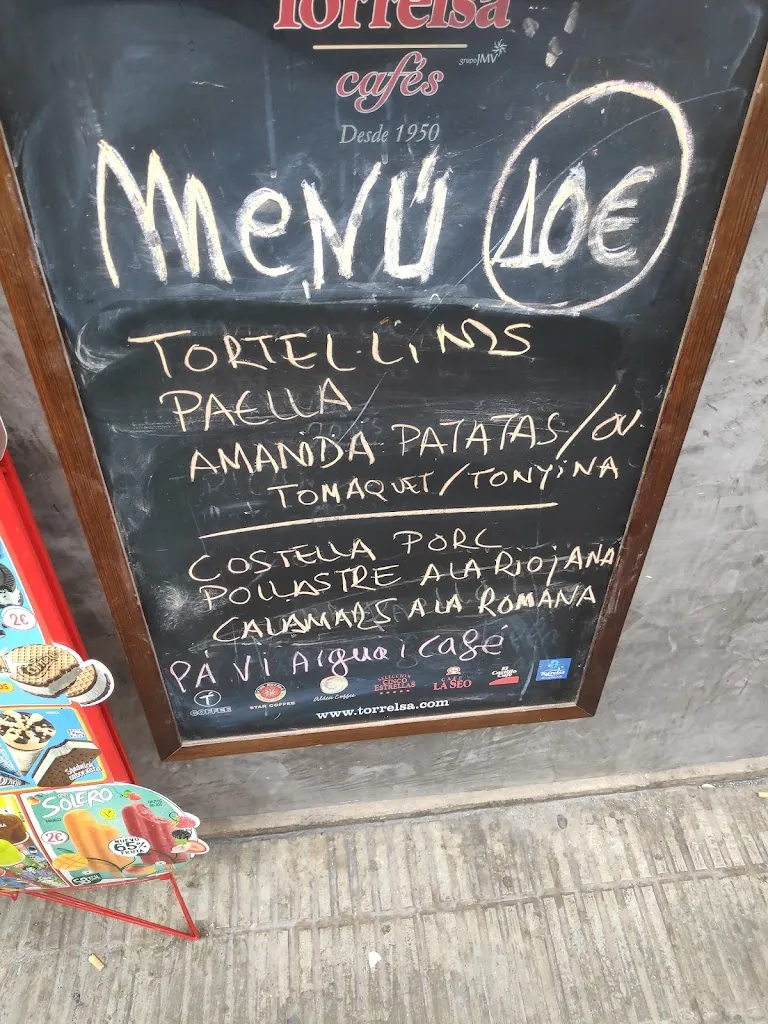 Torrelsa
cafés
grupoJMV
Desde 1950
MENÚ 10€
TORTEL.LINIS
PAELLA
AMANIDA PATATAS/OU
TOMAQUET/TONYINA
COSTELLA PORC
POLLASTRE A LA RIOJANA
CALAMARS A LA ROMANA
PA VI AIGUA I CAFÉ
COFFEE
STAR COFFEE
SELECCIÓN
CINCO
ESTRELLAS
LA SEO
www.torrelsa.com
2€
SOLERO
2€
65%
FRUTA